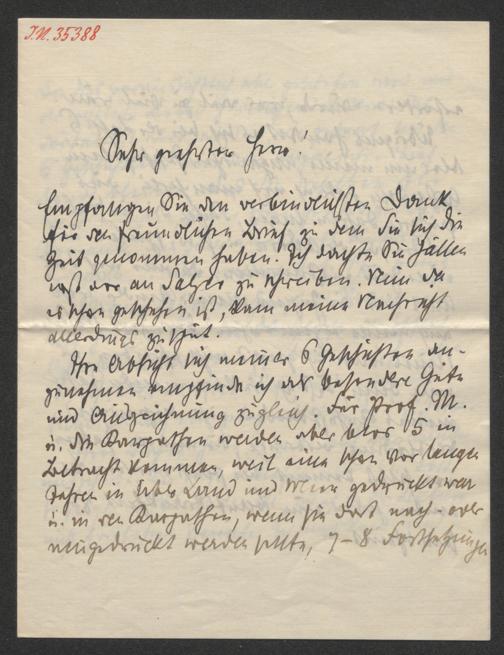 I.N. 35388
Sehr geehrter Herr!
Empfangen Sie den verbindlichsten Dank
für den freundlichen Brief zu dem Sie sich die
Zeit genommen haben. Ich dachte Sie hätten
erst vor an Salzer zu schreiben. Nun da
es schon geschehen ist, kam meine Nachricht
allerdings zu spät.
Ihre Absicht sich meiner 6 Geschichten an-
zunehmen empfinde ich als besondere Güte
und Auszeichnung zugleich. Für Prof. M.
u. die Karpathen werden aber blos 5 in
Betracht kommen, weil eine schon vor langen
Jahren in Über Land und Meer gedruckt war
u. in den Karpathen, wenn sie dort nach- oder
neugedruckt werden sollte, 7-8 Fortsetzungen